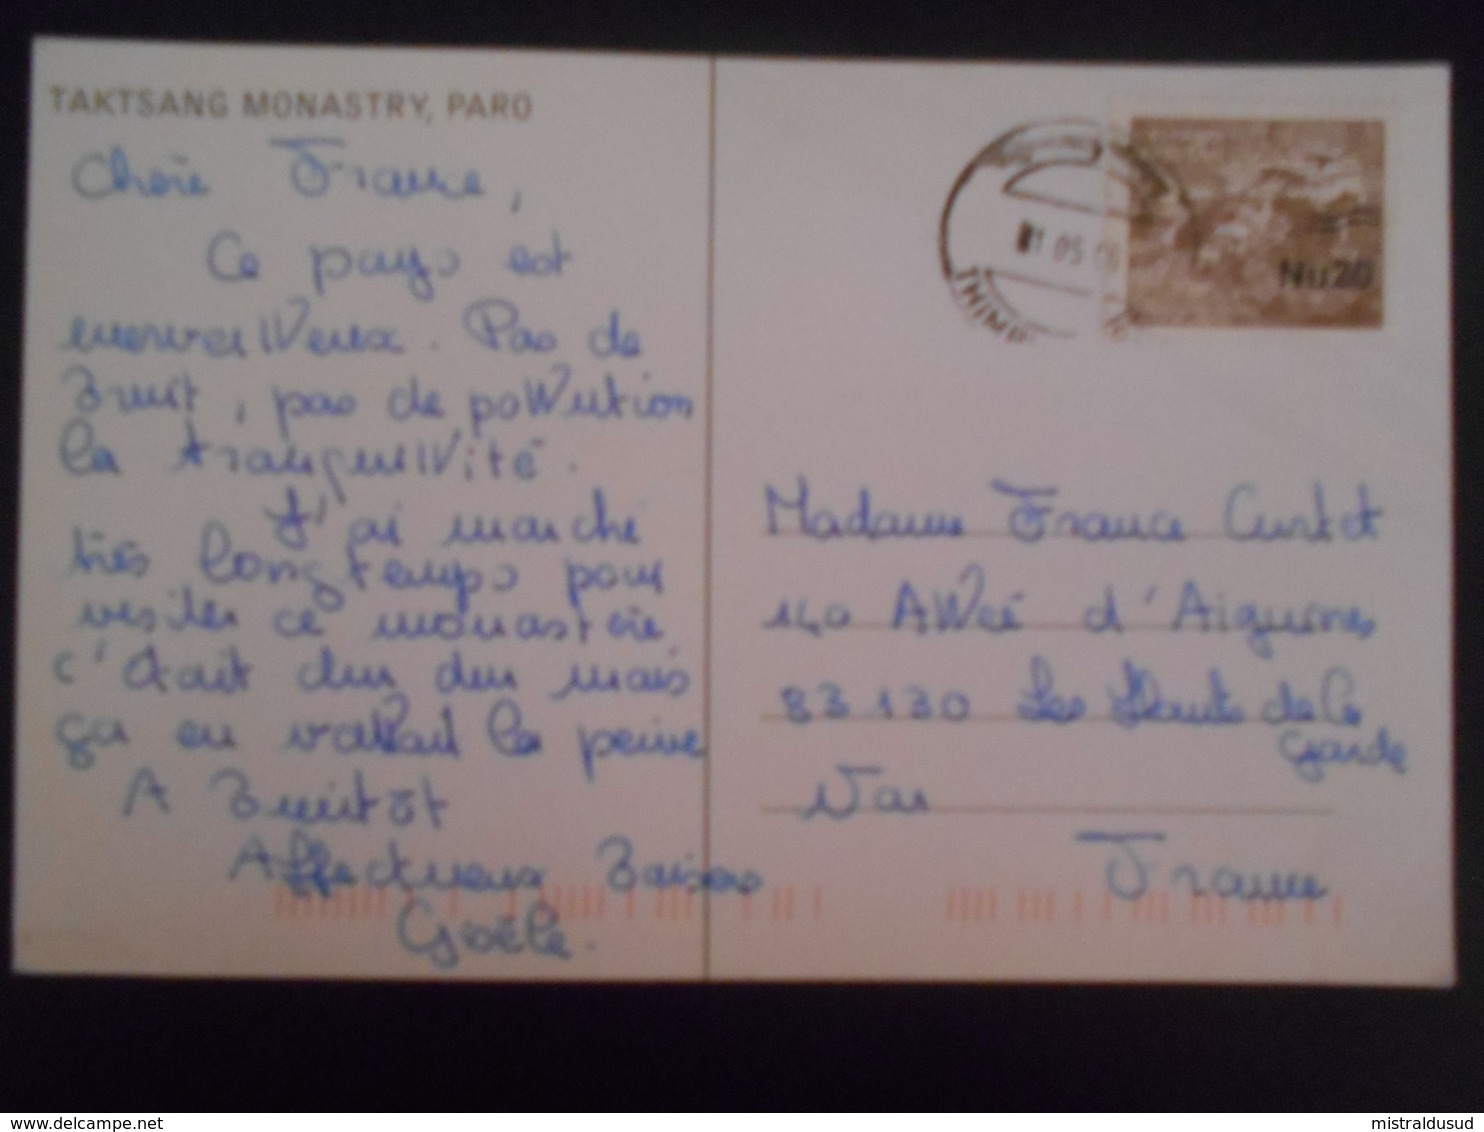 TAKTSANG MONASTRY, PARO
Chère France,
Ce pays est
merveilleux. Pas de
bruit, pas de pollution
la tranquillité.
J'ai marché
très longtemps pour
visiter ce monastère
c'était dur dur mais
ça en vallait la peine
A Bientôt
Affectueux Baisers
Gisèle.
05
THIMP
Nu20
Madame France
140 Allée d'Aiguines
83130 Les Hauts de la
Garde
Var
France
delcampe.net
mistraldusud